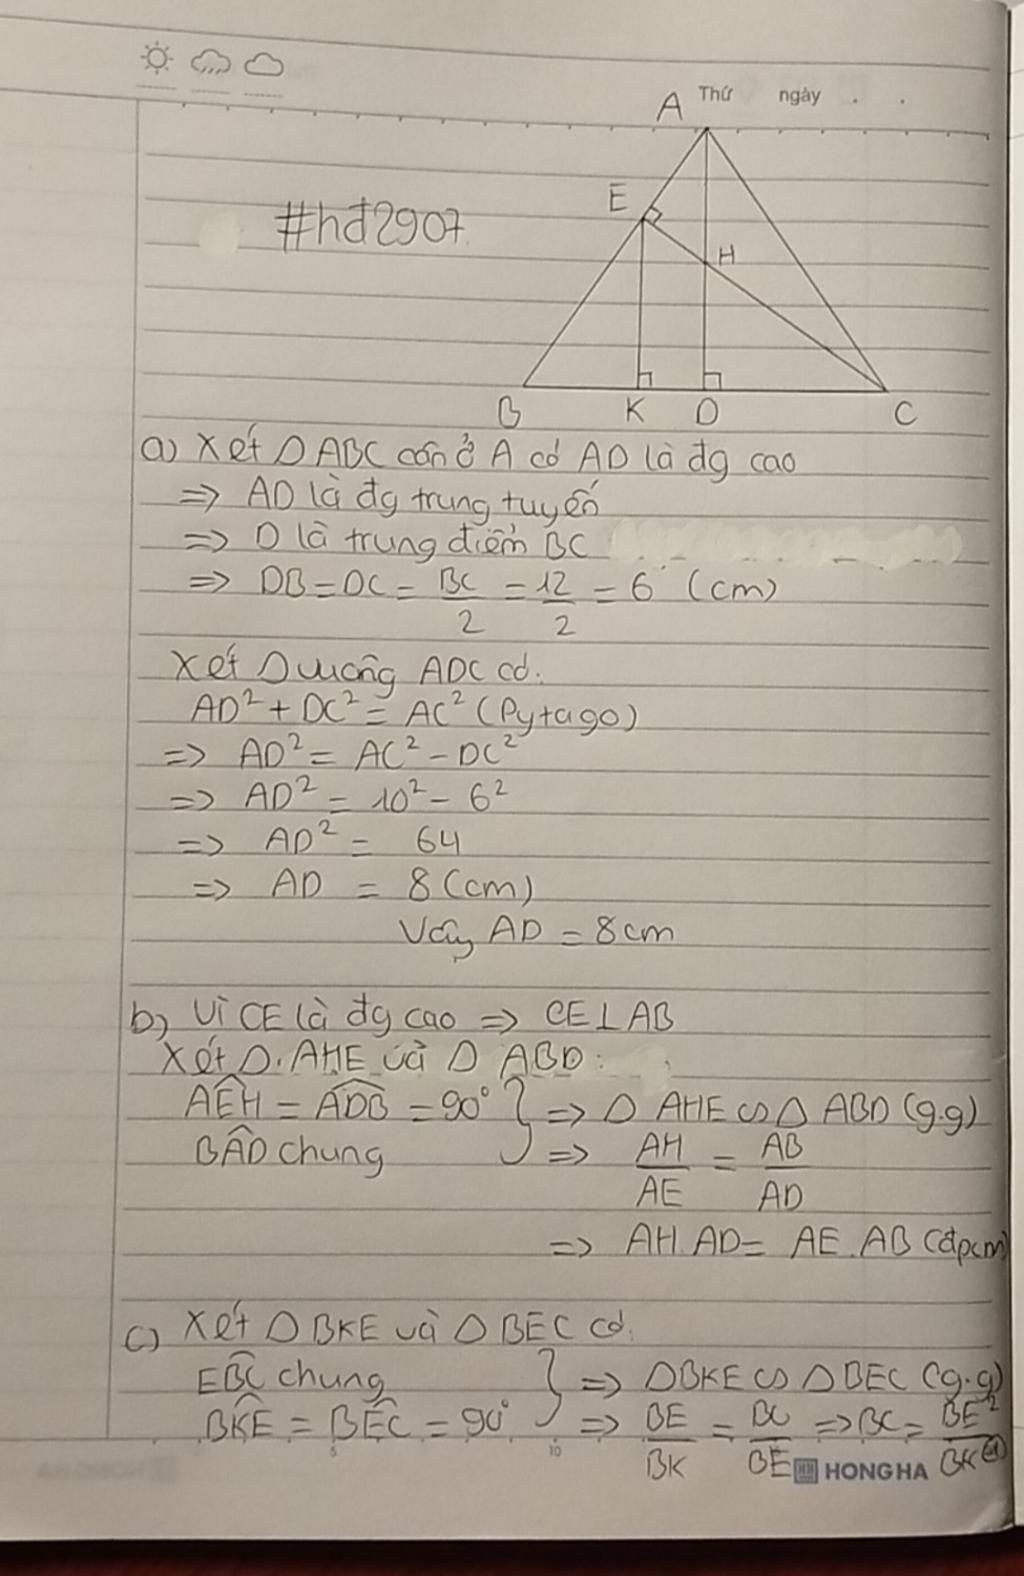 Thứ ngày . .
A
E
#hđ2907
H
B K D C
a) Xét Δ ABC cân ở A có AD là đg cao
=> AD là đg trung tuyến
=> D là trung điểm BC
=> DB = DC = BC/2 = 12/2 = 6 (cm)
Xét Δ vuông ADC có.
AD² + DC² = AC² (Pytago)
=> AD² = AC² - DC²
=> AD² = 10² - 6²
=> AD² = 64
=> AD = 8 (cm)
Vậy AD = 8 cm
b) Vì CE là đg cao => CE ⊥ AB
Xét Δ. AHE và Δ ABD :
AÊH = AD̂B = 90° } => Δ AHE ∽ Δ ABD (g.g)
BÂD chung => AH/AE = AB/AD
=> AH.AD = AE.AB (đpcm)
c) Xét Δ BKE và Δ BEC có.
EB̂C chung } => Δ BKE ∽ Δ BEC (g.g)
BK̂E = BÊC = 90° => BE/BK = BC/BE => BC = BE²/BK (1)
5 10
HONG HA